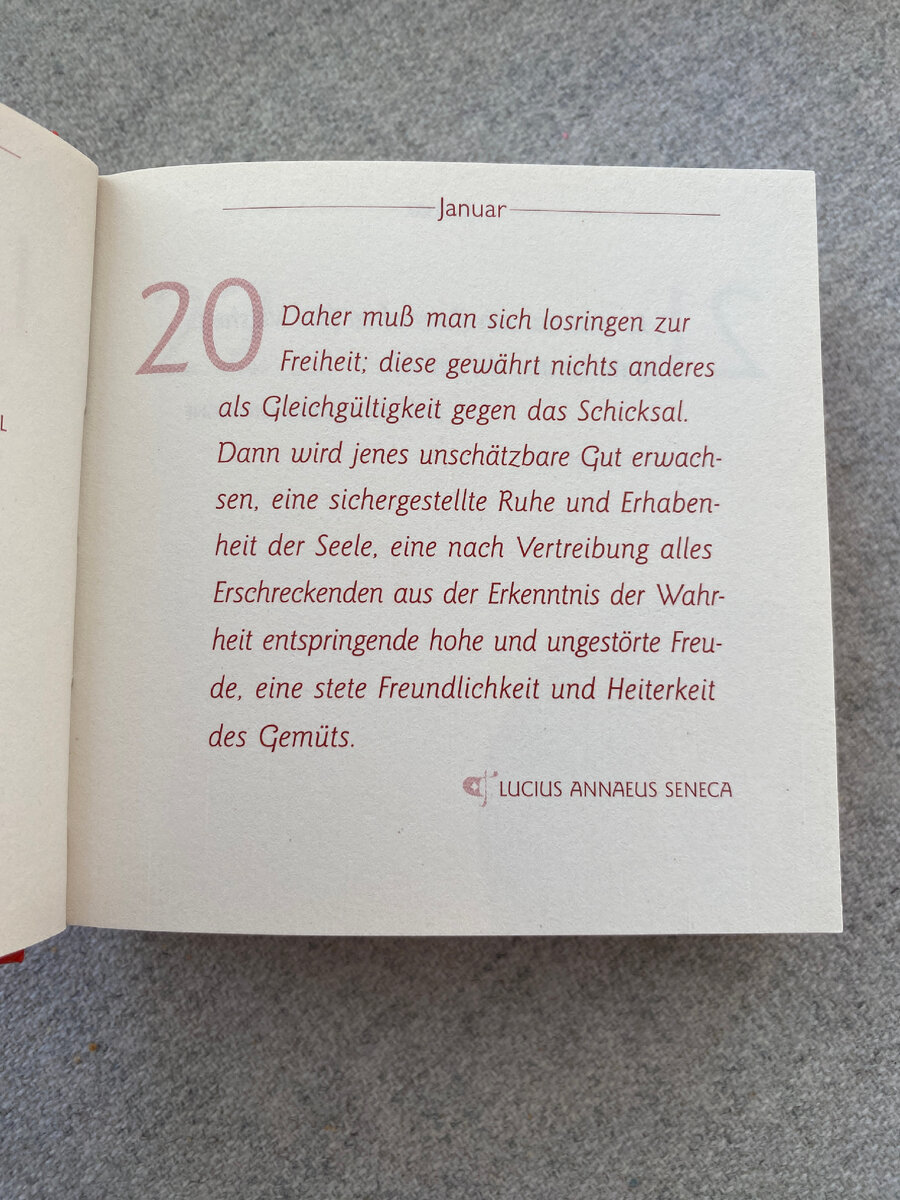 Januar
20 Daher muß man sich losringen zur
Freiheit; diese gewährt nichts anderes
als Gleichgültigkeit gegen das Schicksal.
Dann wird jenes unschätzbare Gut erwach-
sen, eine sichergestellte Ruhe und Erhaben-
heit der Seele, eine nach Vertreibung alles
Erschreckenden aus der Erkenntnis der Wahr-
heit entspringende hohe und ungestörte Freu-
de, eine stete Freundlichkeit und Heiterkeit
des Gemüts.
LUCIUS ANNAEUS SENECA